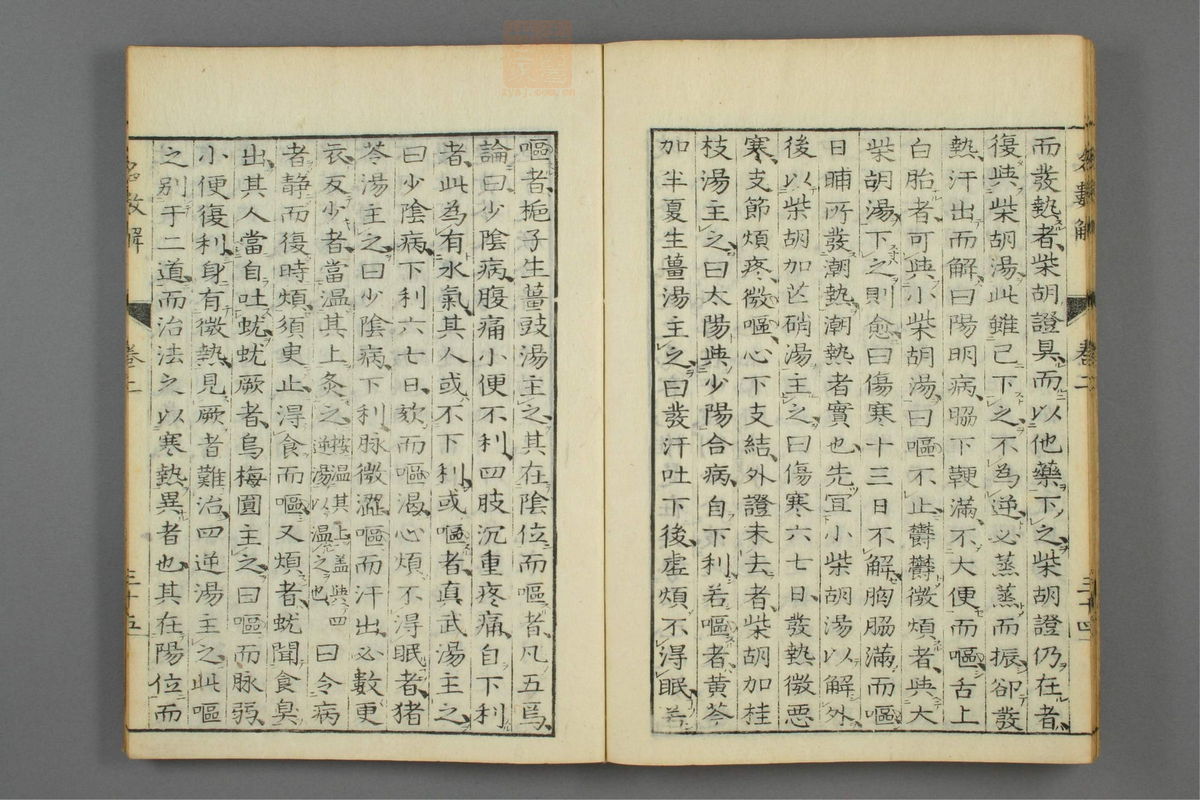 而發熱者、柴胡證具、而以他藥下之、柴胡證仍在者、
復與柴胡湯、此雖已下之、不為逆、必蒸蒸而振、卻發
熱、汗出而解、曰陽明病、脇下鞕滿、不大便而嘔、舌上
白胎者、可與小柴胡湯、曰嘔不止、欝欝微煩者、與大
柴胡湯、下之則愈、曰傷寒十三日不解、胸脇滿而嘔、
日晡所發潮熱、潮熱者實也、先宜小柴胡湯以解外、
後以柴胡加芒硝湯主之、曰傷寒六七日、發熱微惡
寒、支節煩疼、微嘔、心下支結、外證未去者、柴胡加桂
枝湯主之、曰太陽與少陽合病、自下利、若嘔者、黃芩
加半夏生薑湯主之、曰發汗吐下後、虛煩不得眠、若
名數解
卷二
三十四
嘔者、梔子生薑豉湯主之、其在陰位而嘔者、凡五焉、
論曰、少陰病、腹痛、小便不利、四肢沉重疼痛、自下利
者、此為有水氣、其人或不下利、或嘔者、真武湯主之、
曰少陰病、下利六七日、欬而嘔渴、心煩不得眠者、猪
苓湯主之、曰少陰病、下利、脉微澀、嘔而汗出、必數更
衣、反少者、當温其上、灸之、
按温其上、蓋與四
逆湯以温之也、
曰令病
者静、而復時煩、須臾止、得食而嘔、又煩者、蚘聞食臭
出、其人當自吐蚘、蚘厥者、烏梅圓主之、曰嘔而脉弱、
小便復利、身有微熱、見厥者難治、四逆湯主之、此嘔
之别于二道、而治法之以寒熱異者也、其在陽位而
名數解
卷二
三十五